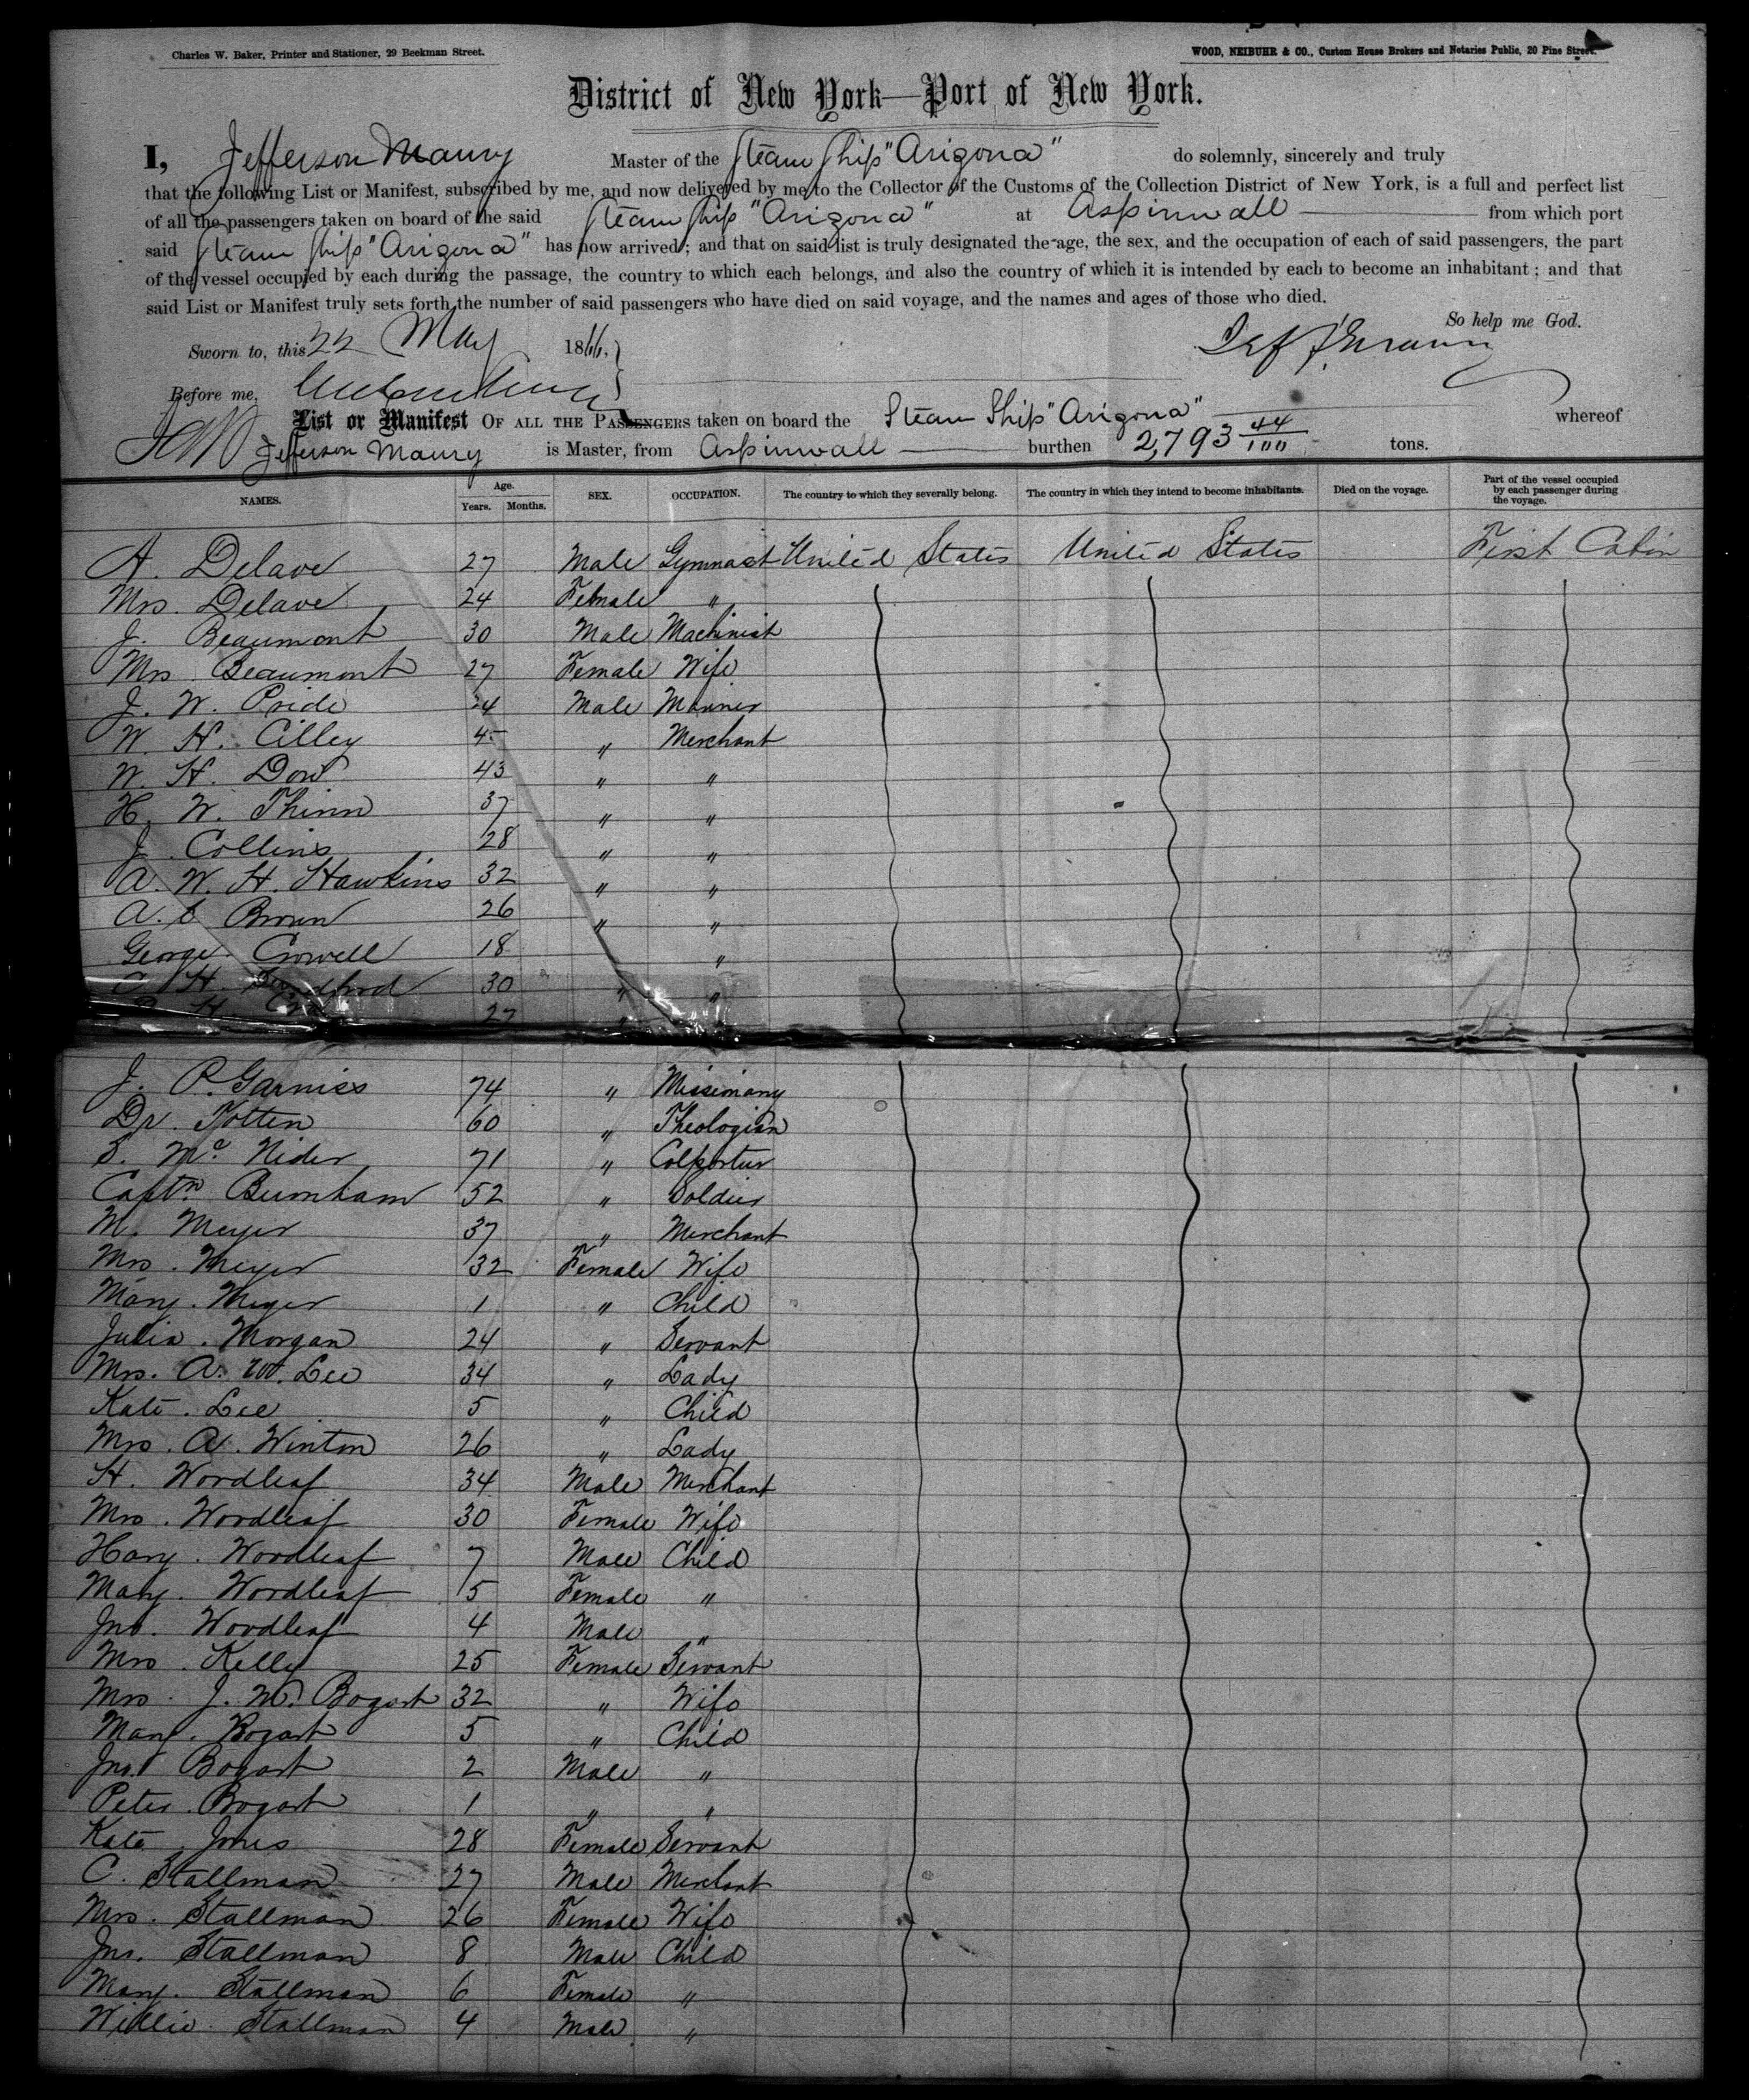 Charles W. Baker, Printer and Stationer, 29 Beekman Street.
WOOD, NEIBUHR & CO., Custom House Brokers and Notaries Public, 20 Pine Street.
District of New York—Port of New York.
I, Jefferson Maury Master of the Steam Ship "Arizona" do solemnly, sincerely and truly
that the following List or Manifest, subscribed by me, and now delivered by me to the Collector of the Customs of the Collection District of New York, is a full and perfect list
of all the passengers taken on board of the said Steam Ship "Arizona" at Aspinwall from which port
said Steam Ship "Arizona" has now arrived; and that on said list is truly designated the age, the sex, and the occupation of each of said passengers, the part
of the vessel occupied by each during the passage, the country to which each belongs, and also the country of which it is intended by each to become an inhabitant; and that
said List or Manifest truly sets forth the number of said passengers who have died on said voyage, and the names and ages of those who died.
So help me God.
Sworn to, this 22 May 1866,
Before me,
List or Manifest OF ALL THE PASSENGERS taken on board the Steam Ship "Arizona" whereof
Jefferson Maury is Master, from Aspinwall burthen 2,793 44/100 tons.
NAMES. Age. Years. Months. SEX. OCCUPATION. The country to which they severally belong. The country in which they intend to become inhabitants. Died on the voyage. Part of the vessel occupied by each passenger during the voyage.
A. Delave 27 Male Gymnast United States United States First Cabin
Mrs. Delave 24 Female "
J. Beaumont 30 Male Machinist
Mrs Beaumont 27 Female Wife
J. W. Pride 24 Male Mariner
W. H. Cilley " Merchant
W. H. Dow 43 " "
H. W. Thinn 37 " "
J. Collins 28 " "
A. W. H. Hawkins 32 " "
A. C Brown 26 " "
George Crowell 18 "
H. 30 " "
H. 27 "
J. P. Garniss 74 " Missionary
Dr. Totten 60 " Theologian
S. Mc Nider 71 " Colporteur
Captn. Burnham 52 " Soldier
M. Meyer 37 " Merchant
Mrs. Meyer 32 Female Wife
Mary. Meyer 1 " Child
Julia. Morgan 24 " Servant
Mrs. A. W. Lee 34 " Lady
Kate. Lee 5 " Child
Mrs. A. Winton 26 " Lady
H. Woodleaf 34 Male Merchant
Mrs. Woodleaf 30 Female Wife
Hary. Woodleaf 7 Male Child
Mary. Woodleaf 5 Female "
Jno. Woodleaf 4 Male "
Mrs. Kelly 25 Female Servant
Mrs. J. M. Bogart 32 " Wife
Mary. Bogart 5 " Child
Jno. Bogart 2 Male "
Peter. Bogart 1 " "
Kate Jones 28 Female Servant
C. Stallman 27 Male Merchant
Mrs. Stallman 26 Female Wife
Jno. Stallman 8 Male Child
Mary. Stallman 6 Female "
Willie. Stallman 4 Male "